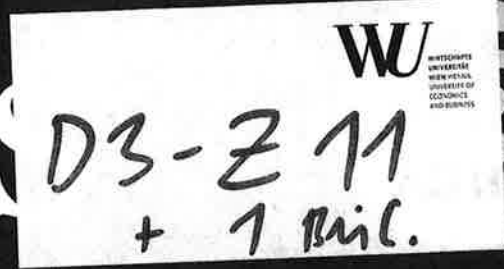 WU
WIRTSCHAFTS
UNIVERSITÄT
WIEN VIENNA
UNIVERSITY OF
ECONOMICS
AND BUSINESS
D3-Z 11
+ 1